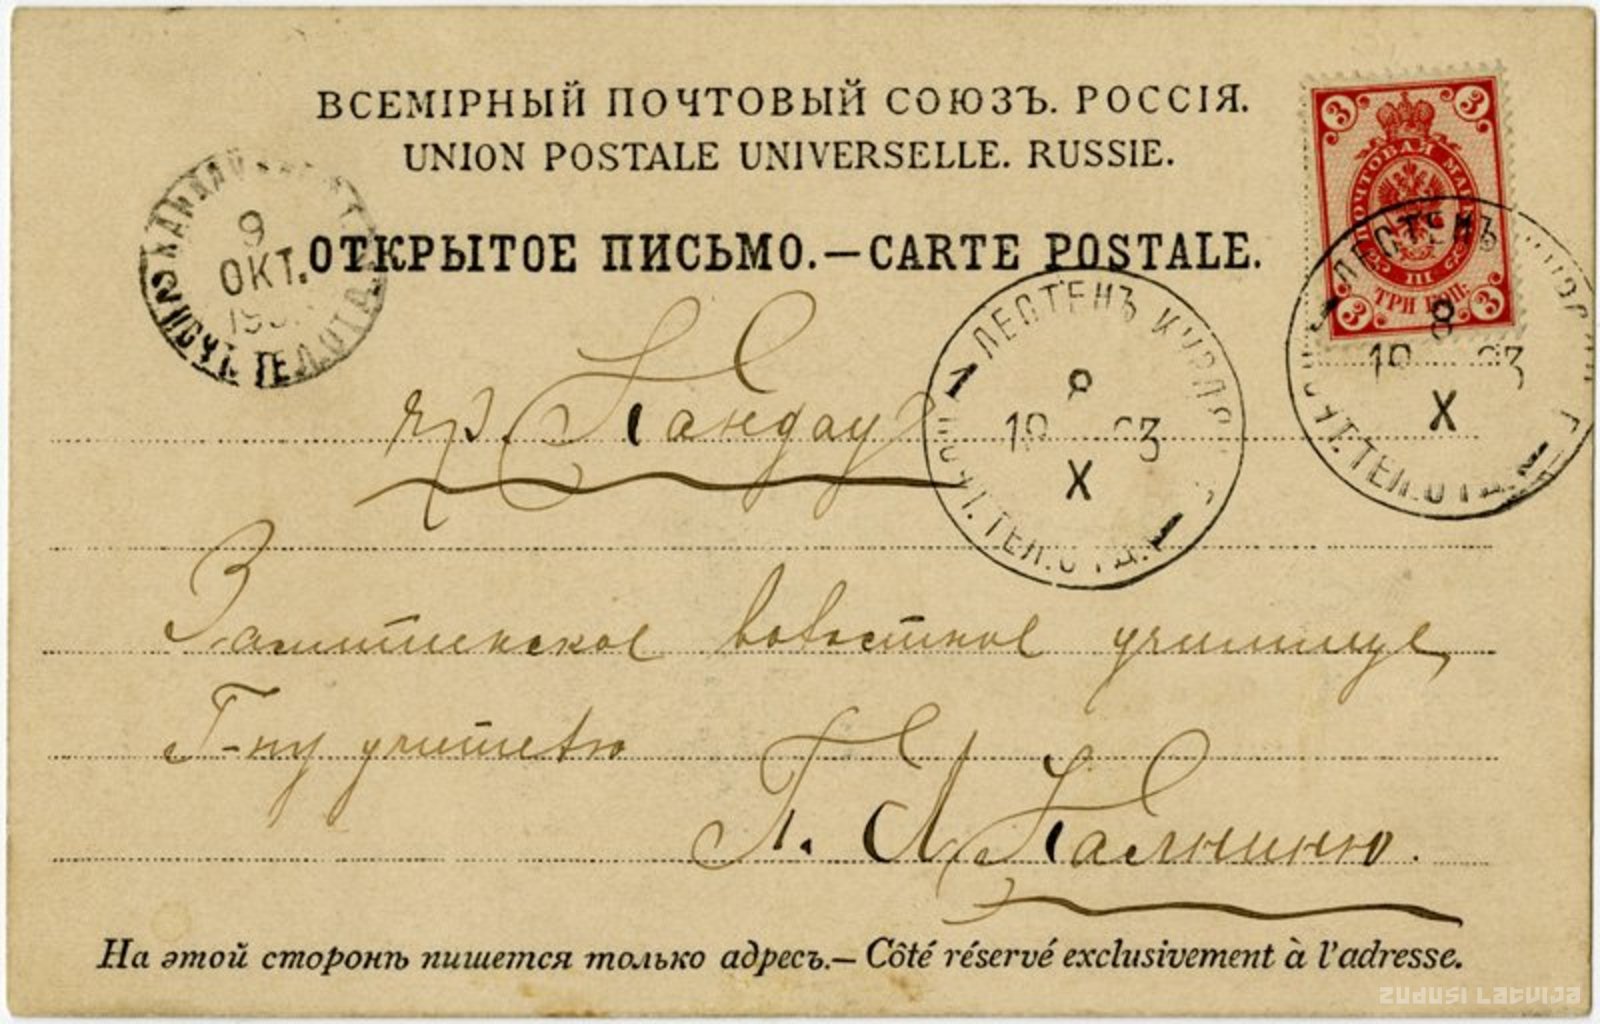 ВСЕМІРНЫЙ ПОЧТОВЫЙ СОЮЗЪ. РОССІЯ.
UNION POSTALE UNIVERSELLE. RUSSIE.
ОТКРЫТОЕ ПИСЬМО.—CARTE POSTALE.
3 3
ПОЧТОВАЯ МАРКА
III
ТРИ КОП.
3 3
9
ОКТ.
ПОЧТ. ТЕЛ. ОТД.
ЛЕСТЕНЪ КУРЛЯ
8
19 03
X
ПОЧТ. ТЕЛ. ОТД.
ЛЕСТЕНЪ КУРЛЯ
8
19 03
X
ПОЧТ. ТЕЛ. ОТД.
чр. Кандау
волостное училище,
Г-ну учителю
Кальниню.
На этой сторонѣ пишется только адресъ.—Côté réservé exclusivement à l'adresse.
ZUDUSI LATVIJA